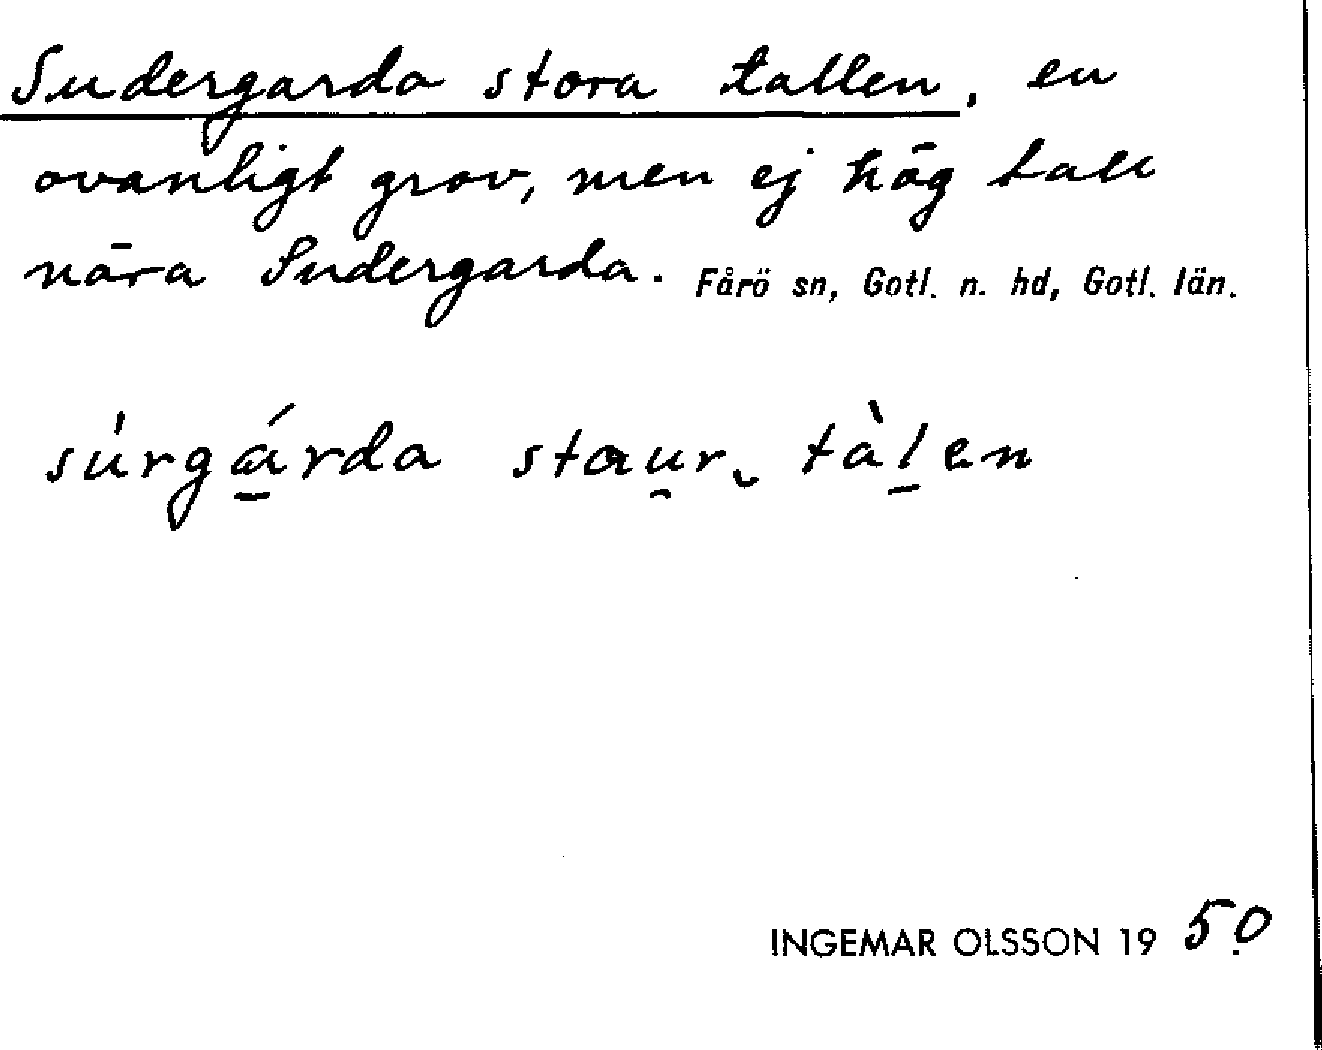 Sudergarda stora tallen, en
ovanligt grov, men ej hög tall
nära Sudergarda. Fårö sn, Gotl. n. hd, Gotl. län.
súrgá̱rda stau̯r˯ tàḻen
INGEMAR OLSSON 19 50